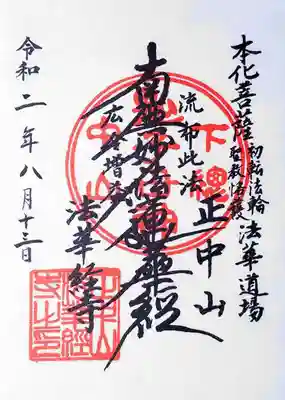 本化菩薩 初転法輪 法華道場
流布此法
正中山
南無妙法蓮華経
広令増益
法華経寺
令和二年八月十三日
下総
中山